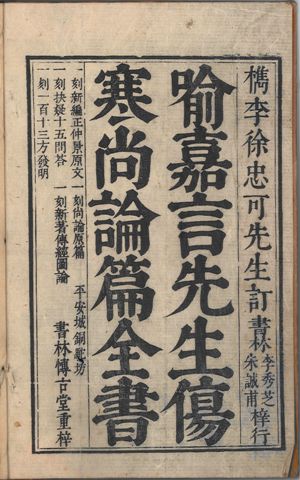 檇李徐忠可先生訂 書林 李秀芝 朱誠甫 梓行
喻嘉言先生傷
寒尚論篇全書
一刻新編正仲景原文 一刻尚論原篇
一刻抉疑十五問答 一刻新著傳經圖論
一刻一百十三方發明
平安城銅駝坊
書林博古堂重梓